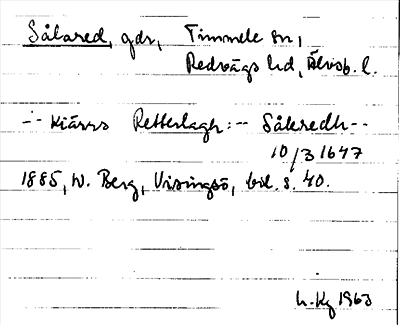 Sålared, gdr, Timmele sn,
Redvägs hd, Älvsb. l.
-- Kiärrs Retterlagh: -- Såleredh --
10/3 1647
1885, W. Berg, Visingsö, bil. s. 40.
h. Kg 1963